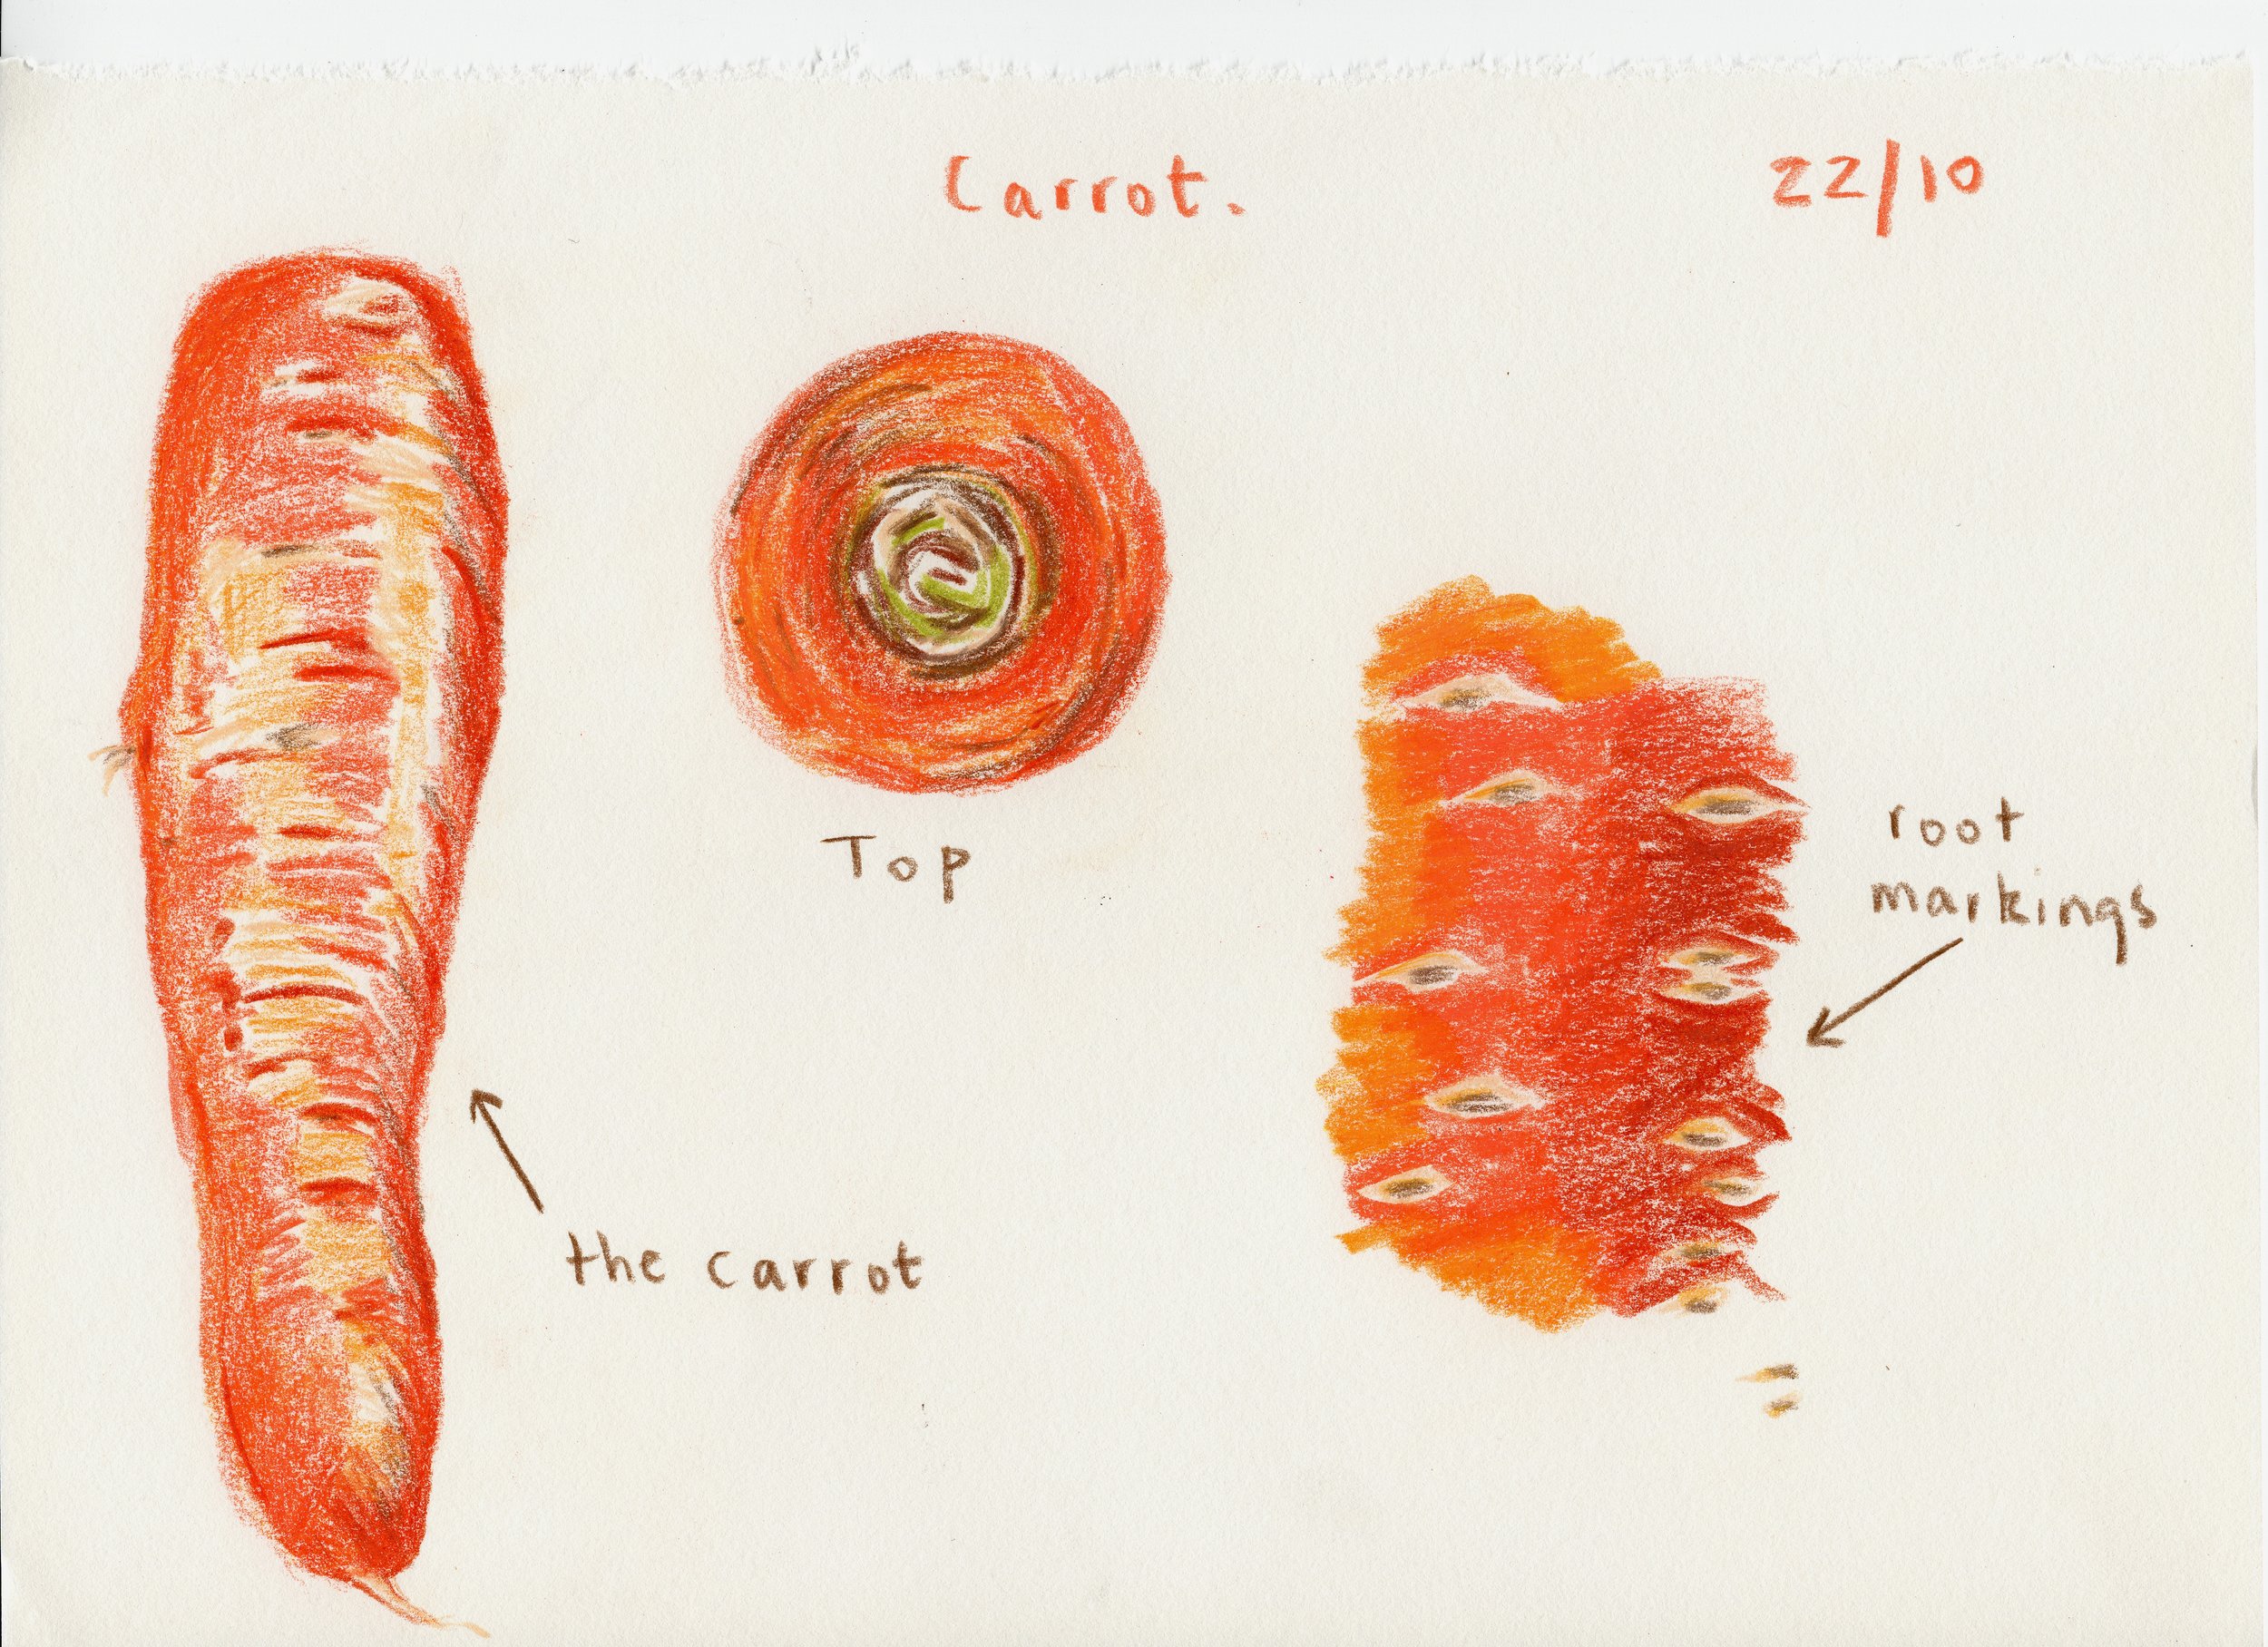 Carrot.
22/10
Top
root
markings
the carrot